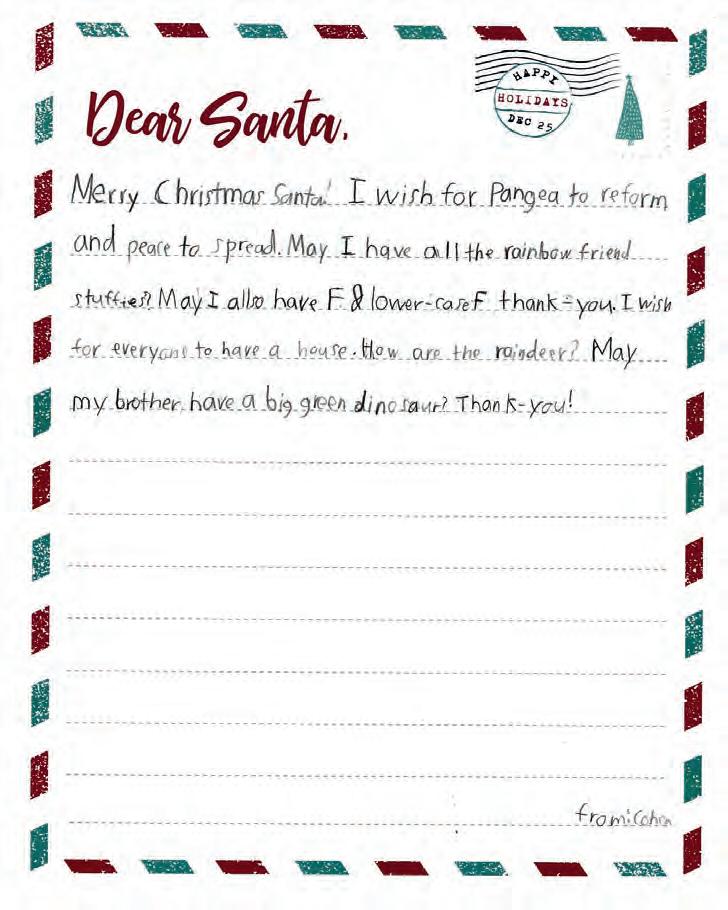 HAPPY
HOLIDAYS
DEC 25
Dear Santa,
Merry Christmas Santa! I wish for Pangea to reform
and peace to spread. May I have all the rainbow friend
stuffies? May I also have F & lower-case F thank-you. I wish
for everyone to have a house. How are the raindeer? May
my brother have a big green dinosaur? Thank-you!
from: Cohen